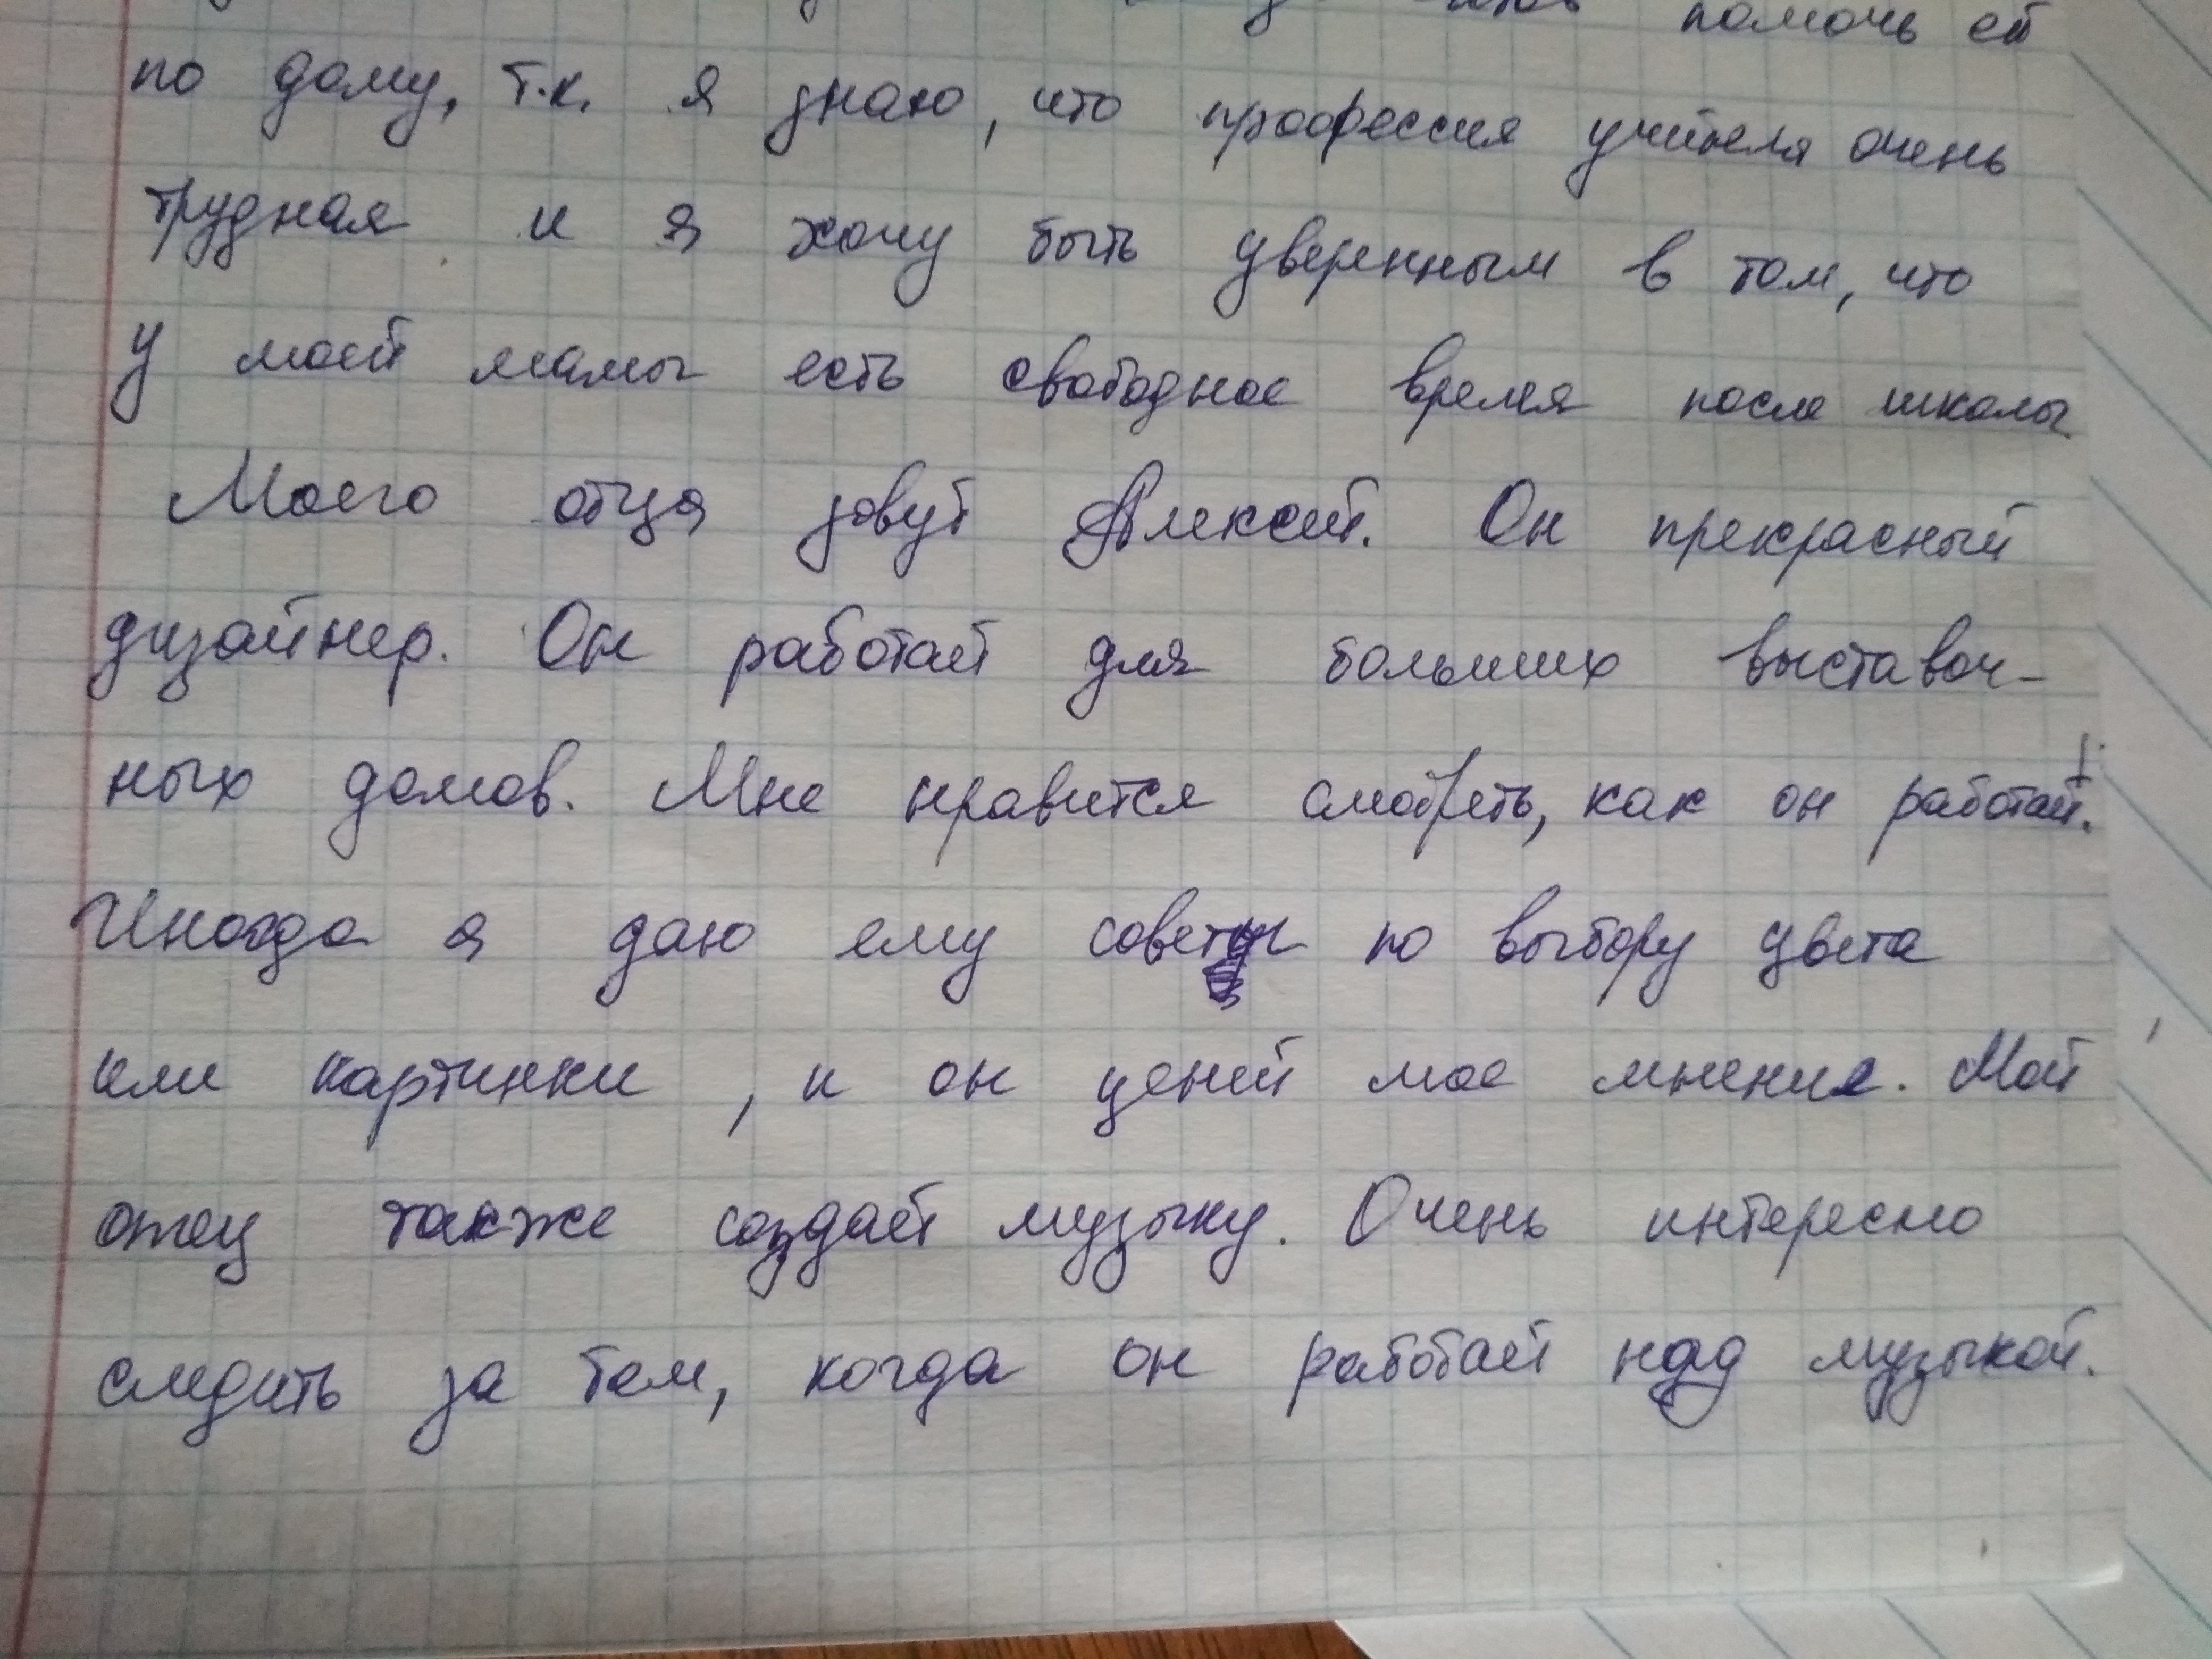 помочь ей
по дому, т.к. я знаю, что профессия учителя очень
трудная и я хочу быть уверенным в том, что
у моей мамы есть свободное время после школы
Моего отца зовут Алексей. Он прекрасный
дизайнер. Он работает для больших выставоч-
ных домов. Мне нравится смотреть, как он работает.
Иногда я даю ему советы по выбору цвета
или картинки, и он ценит мое мнение. Мой
отец также создаёт музыку. Очень интересно
следить за тем, когда он работает над музыкой.